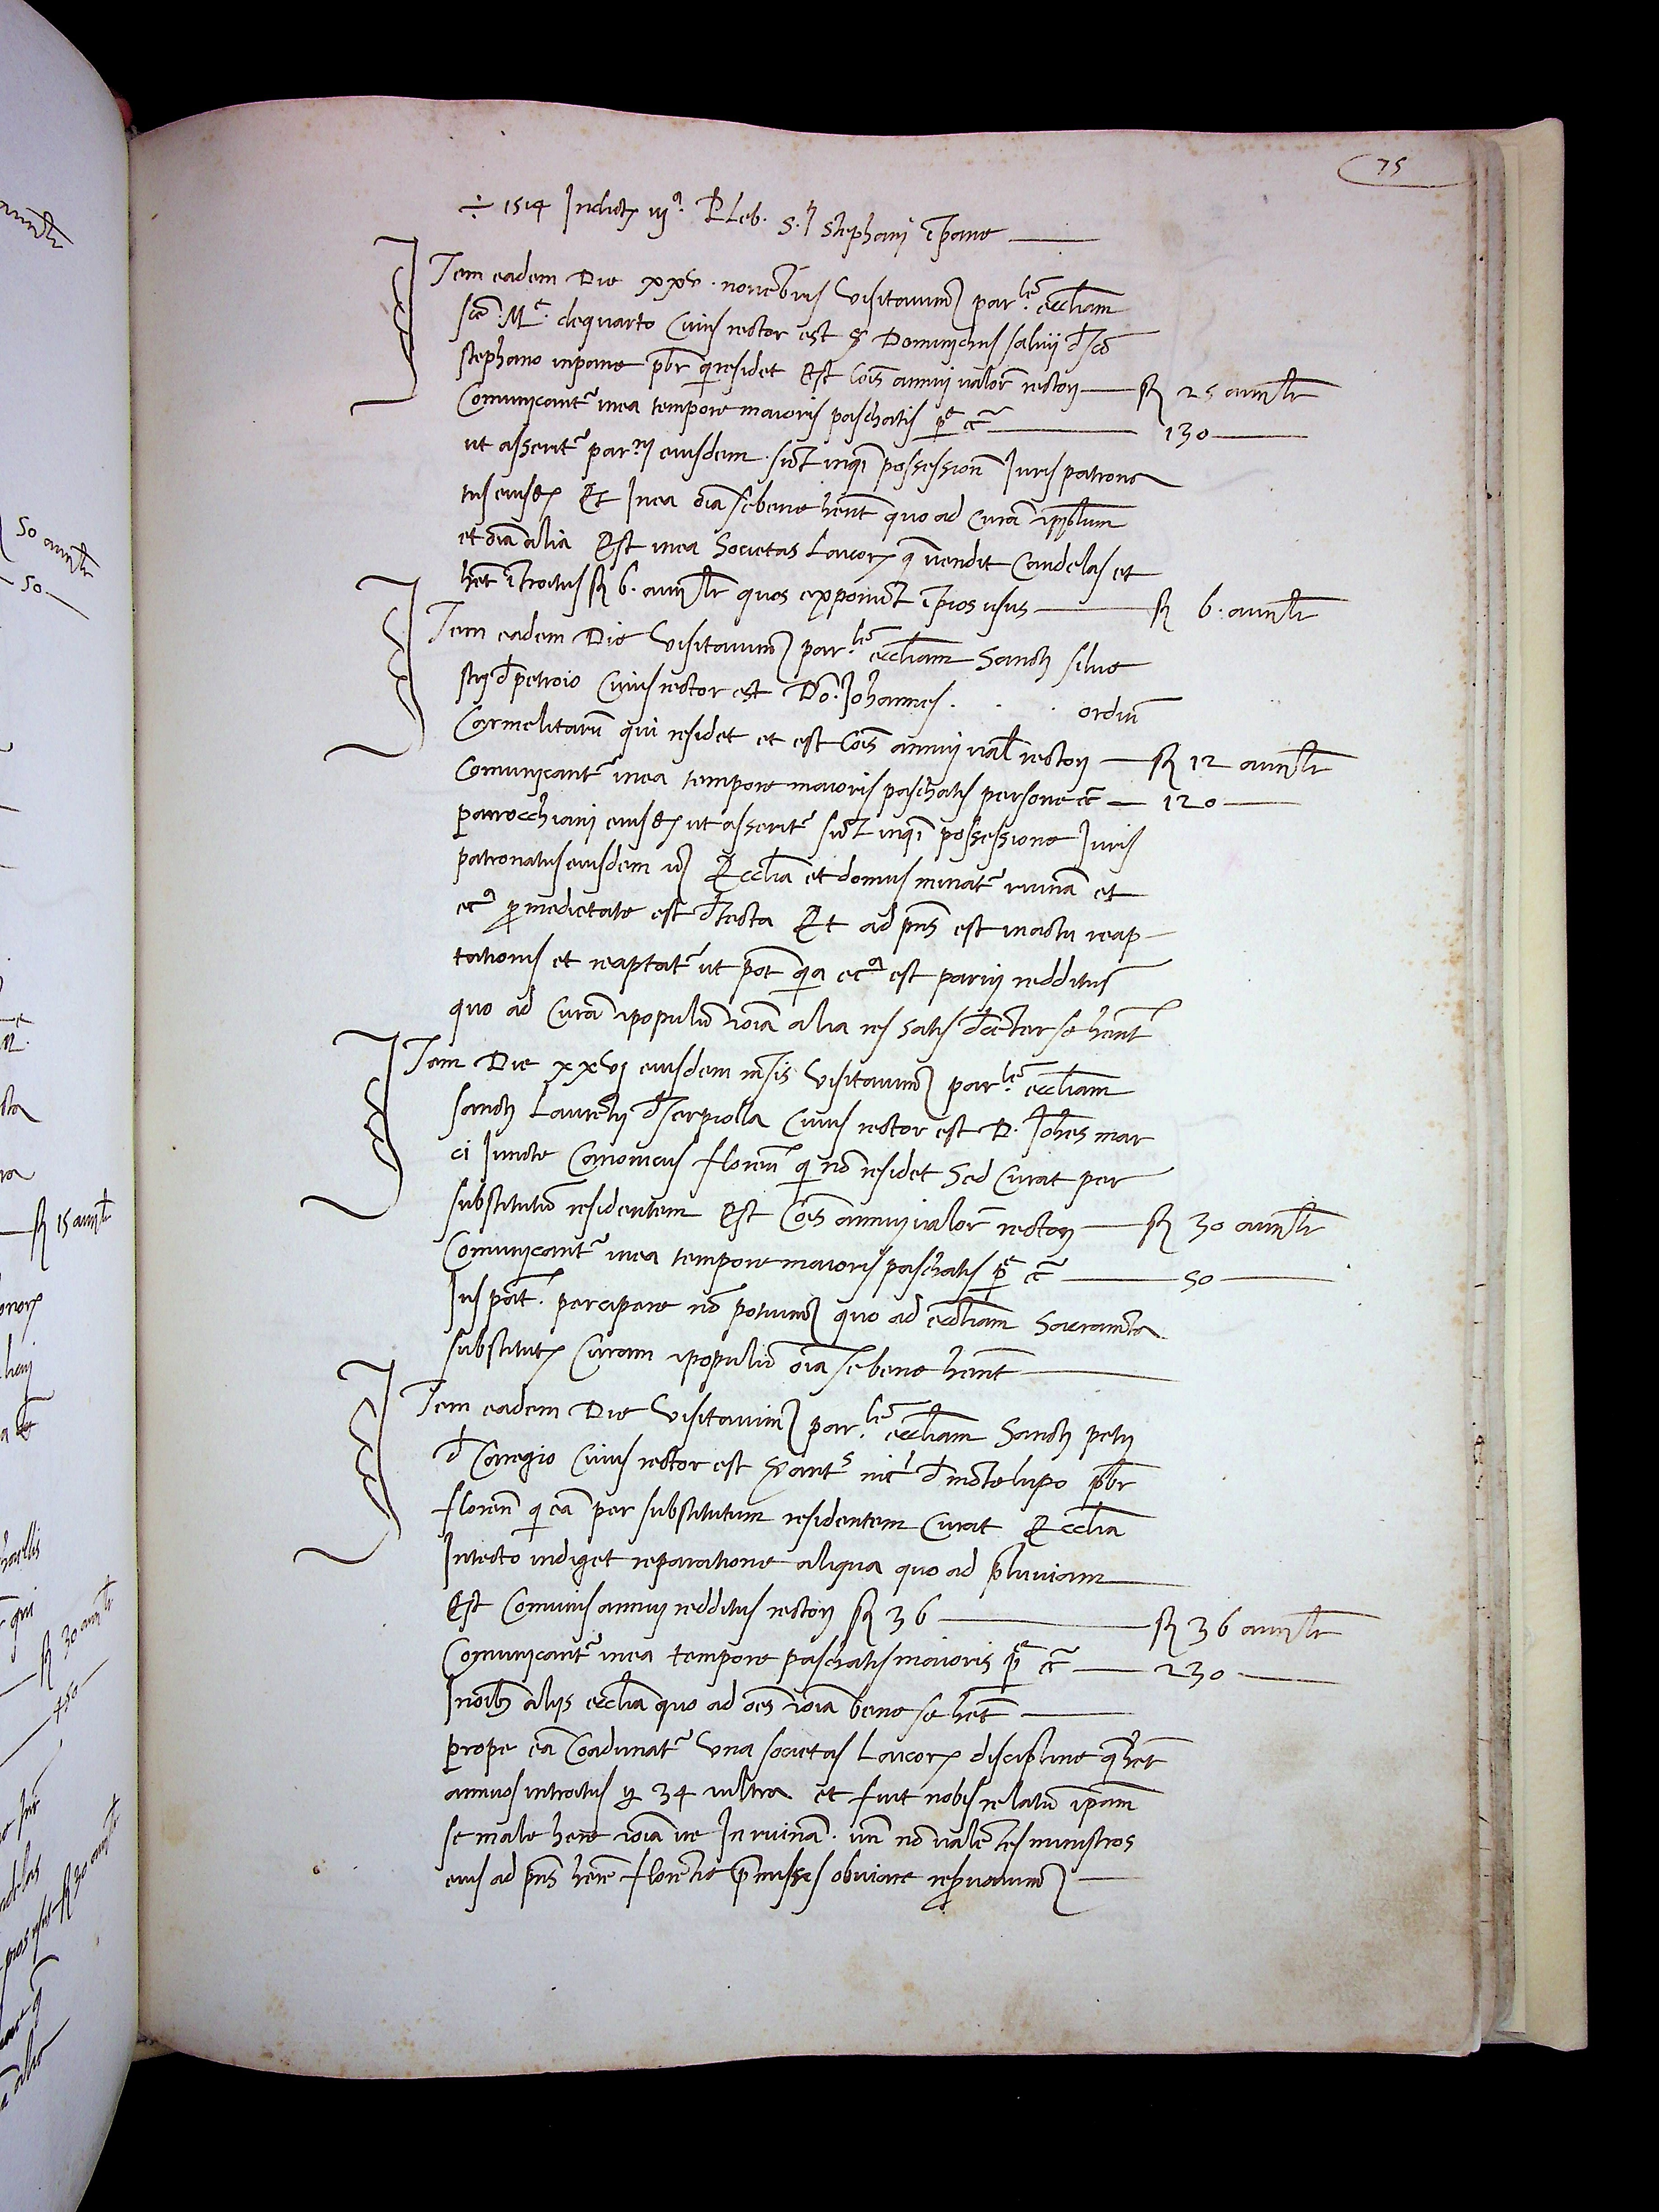 75
÷ 1514 Indict. iijª. Pleb. S.ti Stephani ī pane
Item eadem Die xxv. novēbris visitavimꝰ par.lē eccl̄iam
scē. Mē. dequarto Cuius rector est ser Dominichus salvij d̄ scō
stephano inpane pb̄r q̄ residet Est cōis annuj valor rectorj — 25 aur̄
Comunicant~ inea tempore maioris paschatis pē c̄ — 130
ut asserit~ par.ni eiusdem. sūt inqī possession̄ Iuris patrona
tus eiusdē Et Inea oīa sebene hēnt quo ad Curā ippl̄um
et oīa alia Est inea Societas Laicorꝫ q̄ vendit Candelas et
hēt ītroitus 6. aur̄ quos exponūt ī pios usus — 6. aur̄
Item eadem Die visitavimꝰ par.lē eccl̄iam Sancti silve
strj d̄ petroio Cuius rector est Dō. Johannes . . . ordiīs
Carmelitarū qui residet et est cōis annuj val̄ rectorj — 12 aur̄
Comunicant~ inea tempore maioris paschatis persone c̄ — 120
parrocchianj eiusdē ut asserit~ sūt inqī possessione Iuris
patronatus eiusdem Eccl̄ia et domus minat~ ruinā et
ecª pro medietate est d̄tecta Et ad pn̄s est inactu reap
tationis et reaptat~ ut pōt q̄a ecª est parvj redditus
quo ad Curā ipopulū ioīa alia res satis d̄cēter se hēnt
Item Die xxvj eiusdem mēsis visitavimꝰ par.lē eccl̄iam
sancti Laurētij d̄ serpiolla Cuius rector est D. Joh̄es mar
ci Juncte Canonicus floren̄ q̄ nō residet Sed Curat per
substitutū residentem Est Cōis annuj valor rectorj — 30 aur̄
Comunicant~ inea tempore maioris paschatis pē c̄ — 50
Jus pat̄. percipere nō potuimꝰ quo ad eccl̄iam Sacramēta
substitutꝫ Curam ipopulū oīa se bene hēnt
Item eadem Die visitavimꝰ par.lē eccl̄iam Sancti petrj
d̄ Caregio Cuius rector est Xantes nic̄ d̄ mōtelupo pb̄r
floren̄ q̄ eā per substitutum residentem Curat Eccl̄ia
Intecto indiget reparatione aliqua quo ad pluviam
Est Comunis annuj redditus rectorj 36 — 36 aur̄
Comunicant~ inea tempore paschatis maioris pē c̄ — 230
Inoībꝫ alijs eccl̄ia quo ad oēs ioīa bene se hēt
prope eā Coadunat~ Una societas Laicorꝫ discipline q̄ hēt
annuos introitus 34 ultra et fuit nobis relatū ipam̄
se male hēre ioīa ire Inruinā. un̄ nō valētes ministros
eius ad pn̄s hēre florētie p̄missis obviare reservavimꝰ